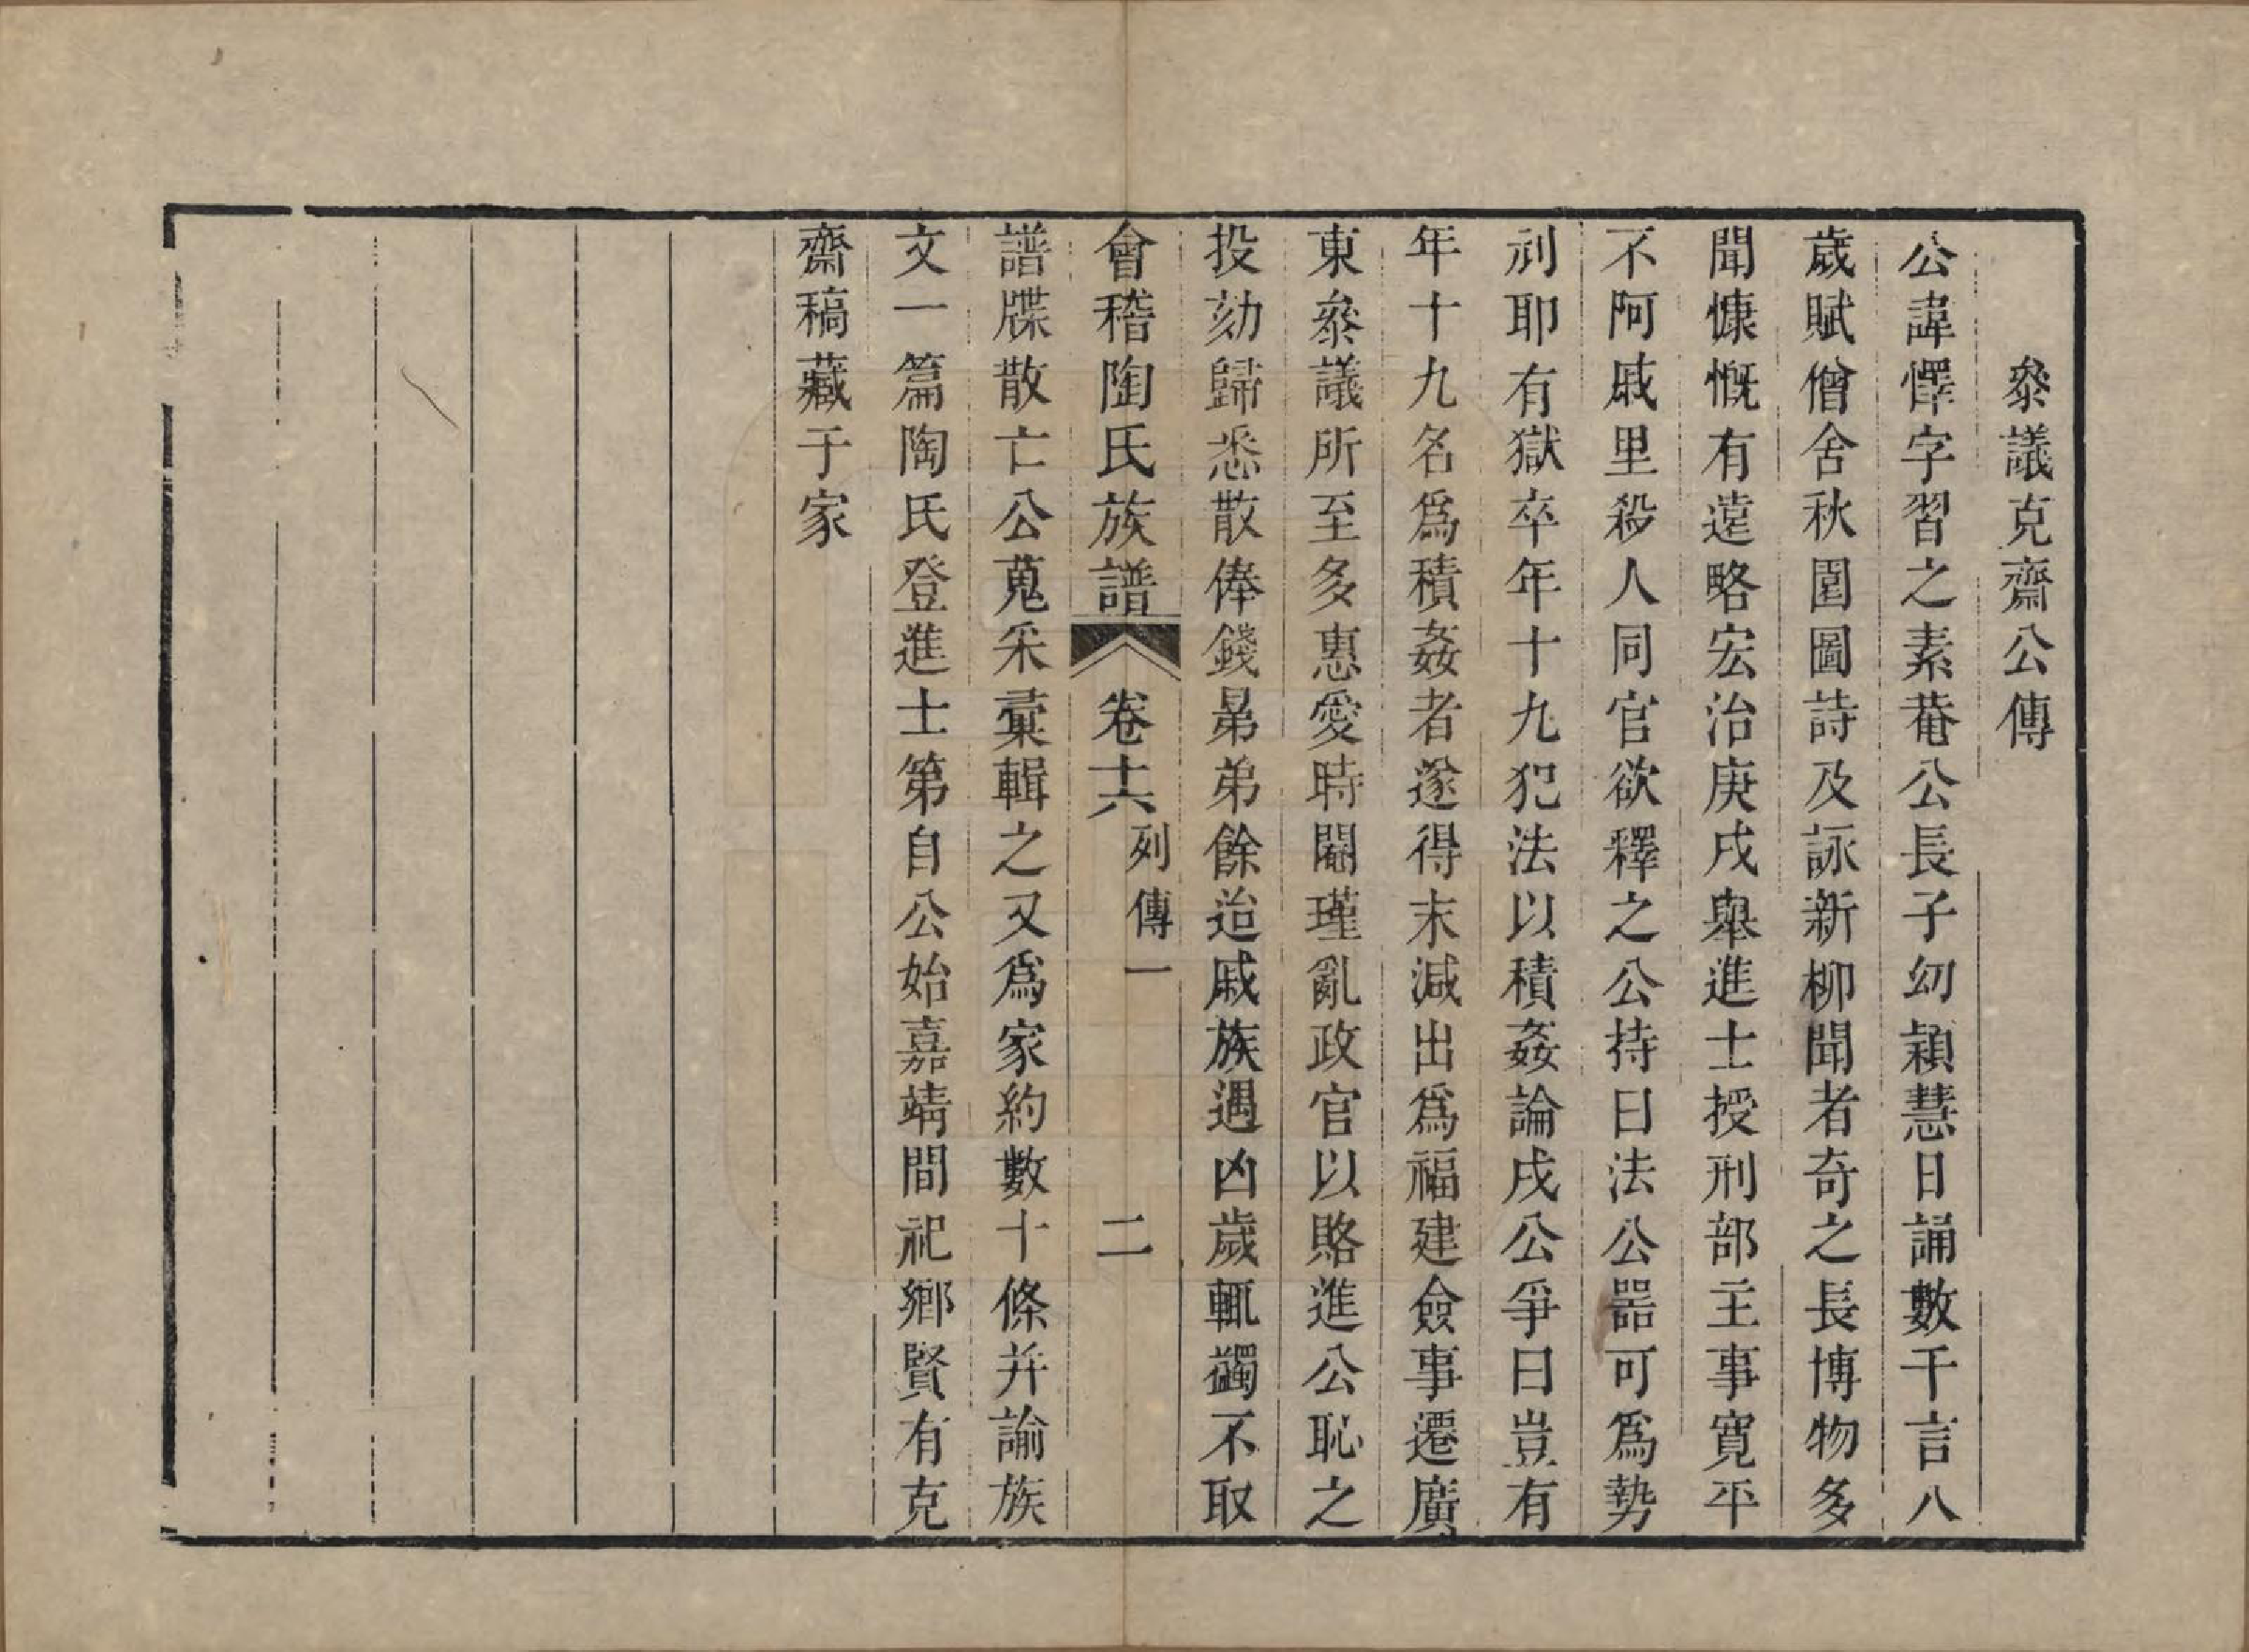 參議克齋公傳
公諱懌字習之素菴公長子幻穎慧日誦數千言八
歲賦僧舍秋圍圖詩及詠新柳聞者奇之長博物多
聞慷慨有遠略宏治庚戌舉進士授刑部主事寬平
不阿戚里殺人同官欲釋之公持曰法公器可為勢
利耶有獄卒年十九犯法以積姦論戍公爭曰豈有
年十九名爲積姦者遂得末減出爲福建僉事遷廣
東參議所至多惠愛時閹瑾亂政官以賂進公恥之
投劾歸悉散俸錢𢌿弟餘迨戚族遇凶歲輒蠲不取
會稽陶氏族譜 卷十六 列傳一 二
譜牒散亡公蒐采彙輯之又爲家約數十條并諭族
文一篇陶氏登進士第自公始嘉靖間祀鄉賢有克
齋稿藏于家